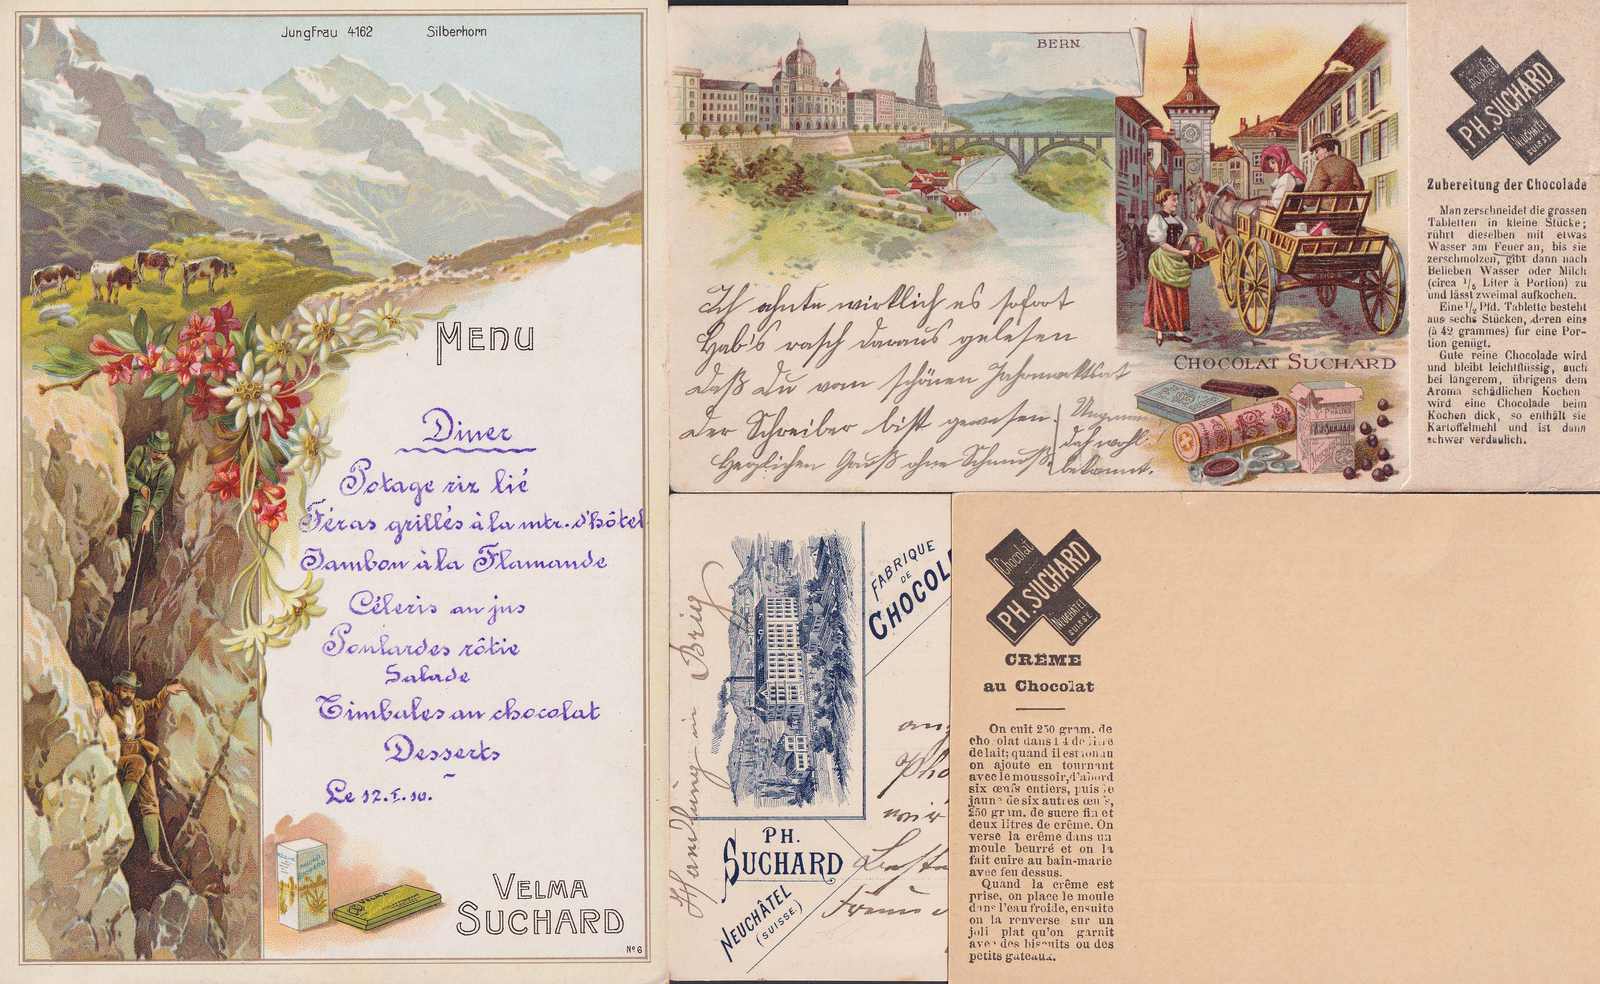 Jungfrau 4162 Silberhorn
MENU
Diner
Potage riz lié
Féras grillés à la mtr. d'hôtel
Jambon à la Flamande
Céleris au jus
Poulardes rôtie
Salade
Timbales au chocolat
Desserts
Le 12.I.10.
VELMA
SUCHARD
Nº 6
BERN
CHOCOLAT SUCHARD
Ich ahnte wirklich es sofort
Hab's rasch daraus gelesen
Daß Du vom schönen Jahrmarktsort
Der Schreiber bist gewesen
Herzlichen Gruß ohne Schmuß
bekannt.
Chocolat
PH. SUCHARD
NEUCHÂTEL
SUISSE.
Zubereitung der Chocolade
Man zerschneidet die grossen
Tabletten in kleine Stücke;
rührt dieselben mit etwas
Wasser am Feuer an, bis sie
zerschmolzen, gibt dann nach
Belieben Wasser oder Milch
(circa 1/5 Liter à Portion) zu
und lässt zweimal aufkochen.
Eine 1/2 Pfd. Tablette besteht
aus sechs Stücken, deren eins
(à 42 grammes) für eine Por-
tion genügt.
Gute reine Chocolade wird
und bleibt leichtflüssig, auch
bei längerem, übrigens dem
Aroma schädlichen Kochen
wird eine Chocolade beim
Kochen dick, so enthält sie
Kartoffelmehl und ist dann
schwer verdaulich.
Handlung in Brig
FABRIQUE
DE
CHOCOL
PH.
SUCHARD
NEUCHÂTEL
(SUISSE.)
Chocolat
PH. SUCHARD
NEUCHÂTEL
SUISSE.
CRÊME
au Chocolat
On cuit 250 gram. de
chocolat dans 1 4 de litre
de lait; quand il est fondu
on ajoute en tournant
avec le moussoir, d'abord
six œufs entiers, puis le
jaune de six autres œufs,
250 gram. de sucre fin et
deux litres de crême. On
verse la crême dans un
moule beurré et on la
fait cuire au bain-marie
avec feu dessus.
Quand la crême est
prise, on place le moule
dans l'eau froide, ensuite
on la renverse sur un
joli plat qu'on garnit
avec des biscuits ou des
petits gateaux.